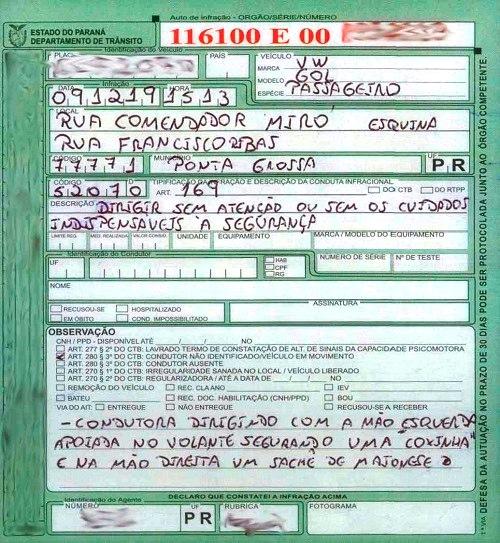 Auto de infração - ORGÃO/SÉRIE/NÚMERO
ESTADO DO PARANÁ
DEPARTAMENTO DE TRÂNSITO
116100 E 00
Identificação do Veículo
PLACA
PAÍS
VEÍCULO
MARCA VW
MODELO GOL
ESPÉCIE PASSAGEIRO
Infração
DATA HORA
091219 1513
LOCAL
RUA COMENDADOR MIRO ESQUINA
RUA FRANCISCO RIBAS
CÓDIGO MUNICÍPIO UF
77771 PONTA GROSSA PR
CÓDIGO TIPIFICAÇÃO DA INFRAÇÃO E DESCRIÇÃO DA CONDUTA INFRACIONAL
52070 ART. 169 DO CTB DO RTPP
DESCRIÇÃO DIRIGIR SEM ATENÇAO OU SEM OS CUIDADOS
INDISPENSAVEIS À SEGURANÇA
LIMITE REG. MED. REALIZADA VALOR CONSID. UNIDADE EQUIPAMENTO MARCA / MODELO DO EQUIPAMENTO
Identificação do Condutor
UF HAB CPF RG NÚMERO DE SÉRIE Nº DE TESTE
NOME
RECUSOU-SE HOSPITALIZADO ASSINATURA
EM ÓBITO COND. IMPOSSIBILITADO
OBSERVAÇÃO
CNH / PPD - DISPONÍVEL ATÉ / / NO
ART. 277 § 2º DO CTB: LAVRADO TERMO DE CONSTATAÇÃO DE ALT. DE SINAIS DA CAPACIDADE PSICOMOTORA
ART. 280 § 3º DO CTB: CONDUTOR NÃO IDENTIFICADO/VEÍCULO EM MOVIMENTO
ART. 280 § 3º DO CTB: CONDUTOR AUSENTE
ART. 270 § 1º DO CTB: IRREGULARIDADE SANADA NO LOCAL / VEÍCULO LIBERADO
ART. 270 § 2º DO CTB: REGULARIZADORA / ATÉ A DATA DE / / NO
REMOÇÃO DO VEÍCULO REC. CLA ANO IEV
BATEU REC. DOC. HABILITAÇÃO (CNH/PPD) BOU
VIA DO AIT: ENTREGUE NÃO ENTREGUE RECUSOU-SE A RECEBER
- CONDUTORA DIRIGINDO COM A MÃO ESQUERDA
APOIADA NO VOLANTE SEGURANDO UMA "COXINHA"
E NA MÃO DIREITA UM SACHÊ DE MAIONESE
Identificação do Agente DECLARO QUE CONSTATEI A INFRAÇÃO ACIMA
NÚMERO UF PR RUBRICA FOTOGRAMA
1ª VIA DEFESA DA AUTUAÇÃO NO PRAZO DE 30 DIAS PODE SER PROTOCOLADA JUNTO AO ÓRGÃO COMPETENTE.